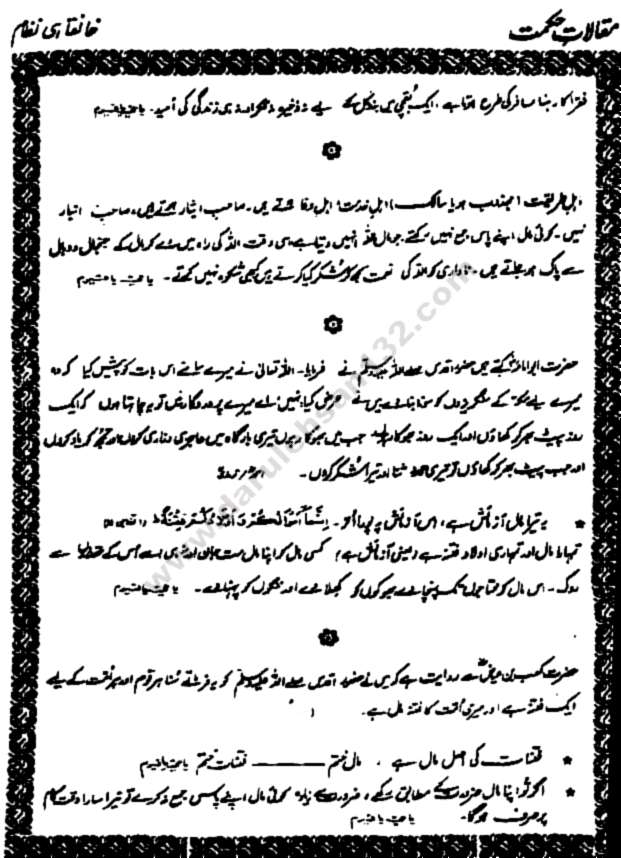 مقالاتِ حکمت
خانقاہی نظام
فقرا کا رہنا مسافر کی طرح ہوتا ہے، ایک بُقچی میں بنگل کے لیے نہ ذخیرہ نہ فکر اور نہ ہی زندگی کی اُمید۔ یا حیُّ یا قیوم
اہلِ طریقت (مجذوب ہو یا سالک) اہلِ قدرت، اہلِ وفا ہوتے ہیں۔ صاحبِ ایثار ہوتے ہیں، صاحبِ انبار
نہیں۔ کوئی مال اپنے پاس جمع نہیں رکھتے۔ جو مال اللہ انہیں دیتا ہے اسی وقت اللہ کی راہ میں دے کر مال کے جنجال و وبال
سے پاک ہو جاتے ہیں۔ ناداری کو اللہ کی نعمت سمجھ کر شکر کیا کرتے ہیں کبھی شکوہ نہیں کرتے۔ یا حیُّ یا قیوم
حضرت ابو امامہؓ کہتے ہیں حضور اقدس صلے اللہ علیہ وسلم نے فرمایا۔ اللہ تعالیٰ نے میرے سامنے اس بات کو پیش کیا کہ وہ
میرے لیے مکہ کے سنگریزوں کو سونا بنا دے میں نے عرض کیا، نہیں! اے میرے پروردگار میں تو یہ چاہتا ہوں کہ ایک
روز پیٹ بھر کر کھاؤں اور ایک روز بھوکا رہوں جب میں بھوکا رہوں تیری بارگاہ میں عاجزی و زاری کروں اور تجھ کو یاد کروں
اور جب پیٹ بھر کر کھاؤں تو تیری حمد و ثنا اور تیرا شکر کروں۔
★ یہ تیرا مال آزمائش ہے، اس آزمائش پہ پورا اتر۔ اِنَّمَآ اَمْوَالُكُمْ وَ اَوْلَادُكُمْ فِتْنَةٌ ؕ
تمہارا مال اور تمہاری اولاد فتنہ ہے (یعنی آزمائش ہے) کسی مال کو اپنا مال مت جان اور نہ ہی اسے اُس کے حقداروں سے
روک۔ اس مال کو محتاجوں تک پہنچا دے بھوکوں کو کھلا دے اور ننگوں کو پہنا دے۔ یا حیُّ یا قیوم
حضرت کعب بن عیاضؓ سے روایت ہے کہ میں نے حضور اقدس صلے اللہ علیہ وسلم کو یہ فرماتے سُنا ہر قوم اور ہر اُمت کے لیے
ایک فتنہ ہے اور میری اُمت کا فتنہ مال ہے۔
★ فتنات کی اصل مال ہے، مال ختم ——— فتنات ختم یا حیُّ یا قیوم
★ اگر تُو اپنا مال ضرورت کے مطابق رکھے، ضرورت سے زیادہ کوئی مال اپنے پاس جمع نہ کرے تو تیرا سارا وقت کام
پر صرف ہوگا۔ یا حیُّ یا قیوم
www.darulehsan132.com